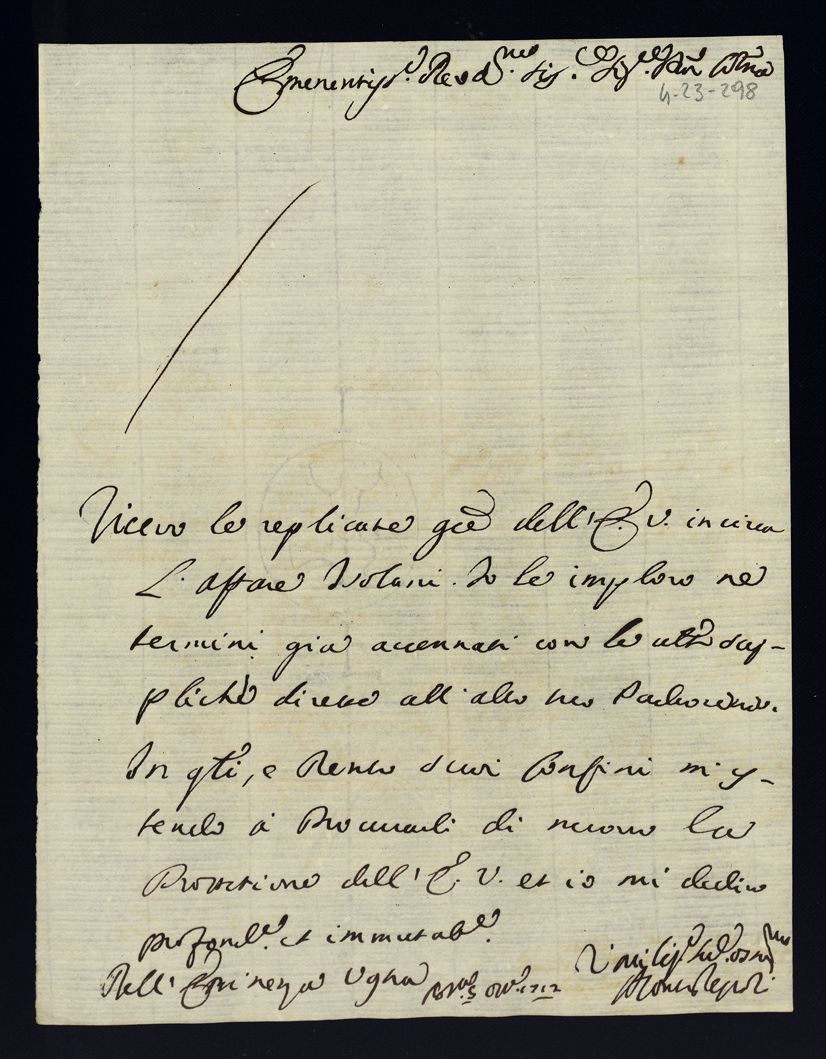 Eminentiss.e Revd.mo Sig.e Sig.e Pñ Colmo
4-23-298
Ricevo le replicate grẽ dell' E. V. in circa
L'affare Isolani. Io le imploro ne
termini già accennati con le sup-
pliche dirette all'alto suo Padrocinio.
In qti, e dentro suoi Confini mi s-
tendo à Procurarli di nuovo la
Protetione dell' E. V. et io mi dedico
profond.e et immutab.e
Dell' Eminenza Vostra
Umiliss.o